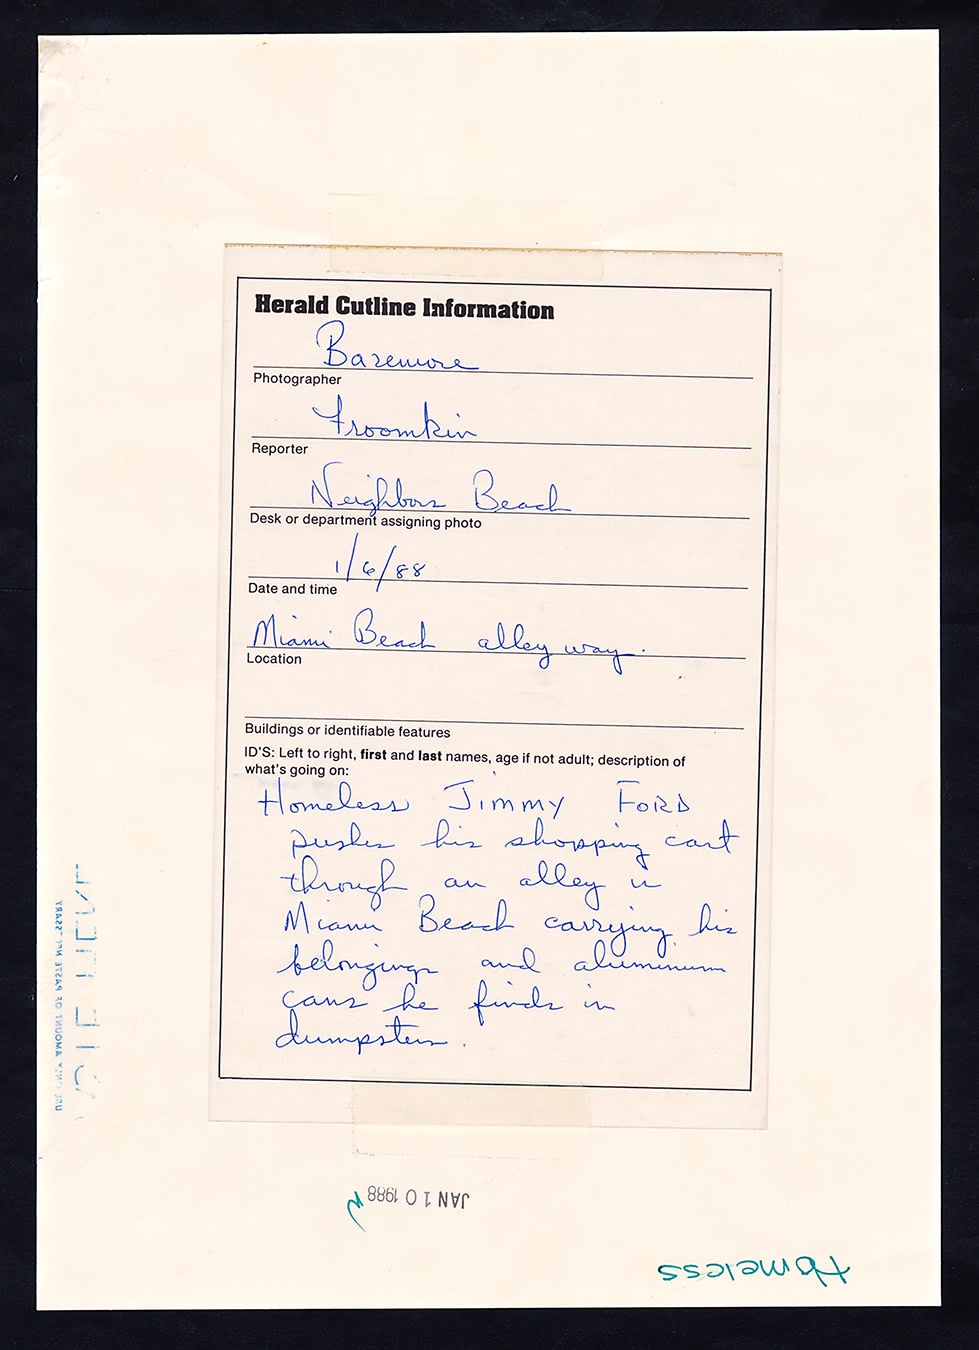 Herald Cutline Information
Bazemore
Photographer
Froomkin
Reporter
Neighbors Beach
Desk or department assigning photo
1/6/88
Date and time
Miami Beach alley way.
Location
Buildings or identifiable features
ID'S: Left to right, first and last names, age if not adult; description of
what's going on:
Homeless Jimmy Ford
pushes his shopping cart
through an alley in
Miami Beach carrying his
belongings and aluminum
cans he finds in
dumpsters.
AMOUNT OF PASTE NECESSARY
JAN 10 1988
Homeless